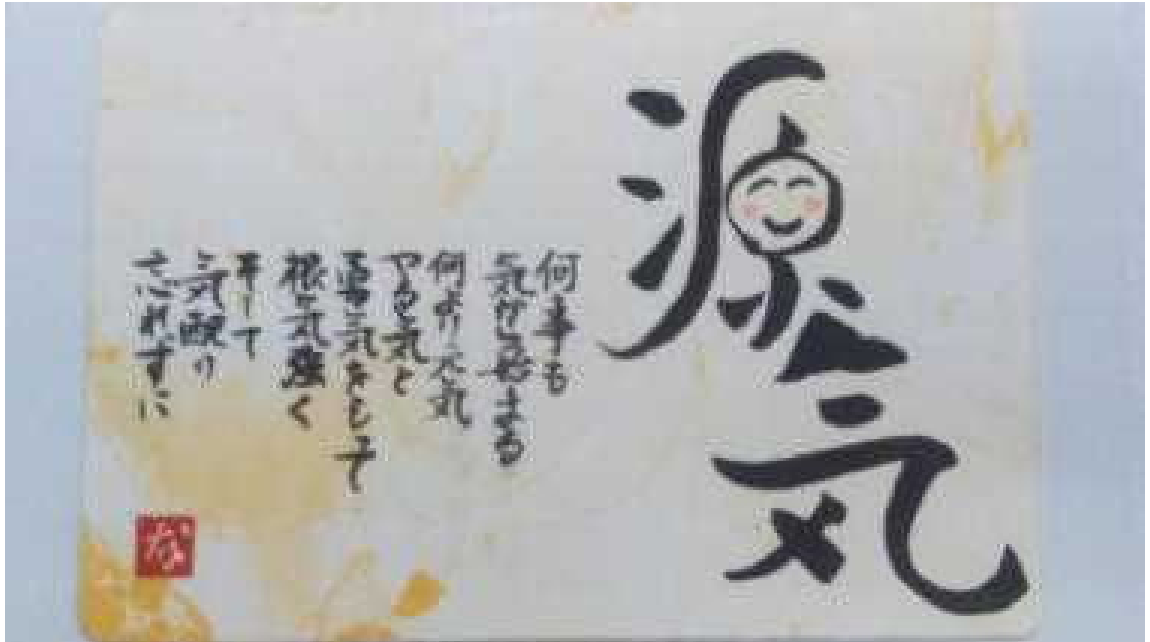 源気
何事も
気から始まる
何より元気
やる気と
勇気をもって
根気強く
そして
気配り
忘れずに
な